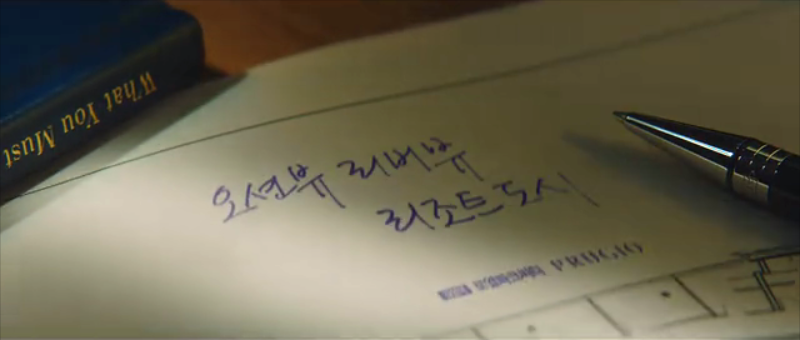 What You Must
오션뷰 리버뷰
리조트 도시
PRUGIO